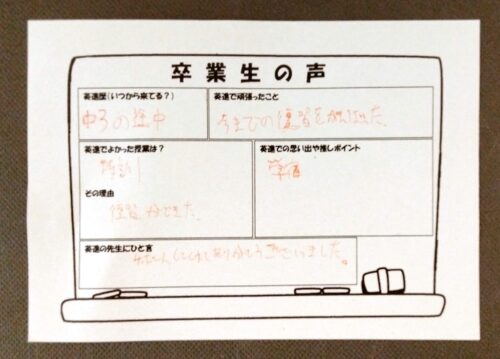 卒業生の声
英進歴(いつから来てる?)
中3の途中
英進で頑張ったこと
今までの復習をがんばった。
英進でよかった授業は?
その理由
復習ができた。
英進での思い出や推しポイント
英進の先生にひと言
ありがとうございました。